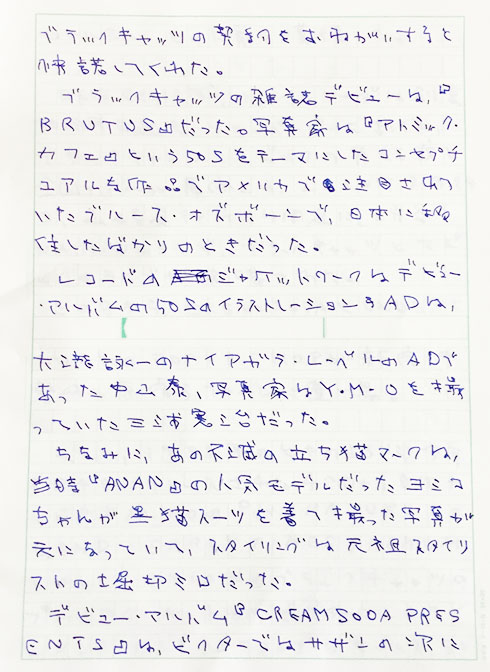 ブラックキャッツの契約をおねがいすると
快諾してくれた。
ブラックキャッツの雑誌デビューは、『
BRUTUS』だった。写真家は『アトミック・
カフェ』という50Sをテーマにしたコンセプチ
ュアルな作品でアメリカで注目されて
いたブルース・オズボーンで、日本に移
住したばかりのときだった。
レコードのジャケットワークはデビュー
・アルバムの50SのイラストレーションをADは、
大瀧詠一のナイアガラ・レーベルのADで
あった中山泰、写真家はY・M・Oを撮
っていた三浦憲治だった。
ちなみに、あの不滅の立ち猫マークは、
当時『ANAN』の人気モデルだったヨミコ
ちゃんが黒猫スーツを着て撮った写真が
元になっていて、スタイリングは元祖スタイリ
ストの堀切ミロだった。
デビュー・アルバム『CREAM SODA PRES
ENTS』は、ビクターではサザンの次に